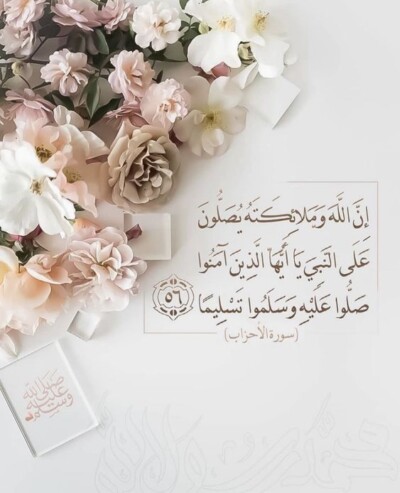 إِنَّ اللَّهَ وَمَلَائِكَتَهُ يُصَلُّونَ
عَلَى النَّبِيِّ يَا أَيُّهَا الَّذِينَ آمَنُوا
صَلُّوا عَلَيْهِ وَسَلِّمُوا تَسْلِيمًا ٥٦
(سورة الأحزاب)
صلى الله
عليه
وسلم